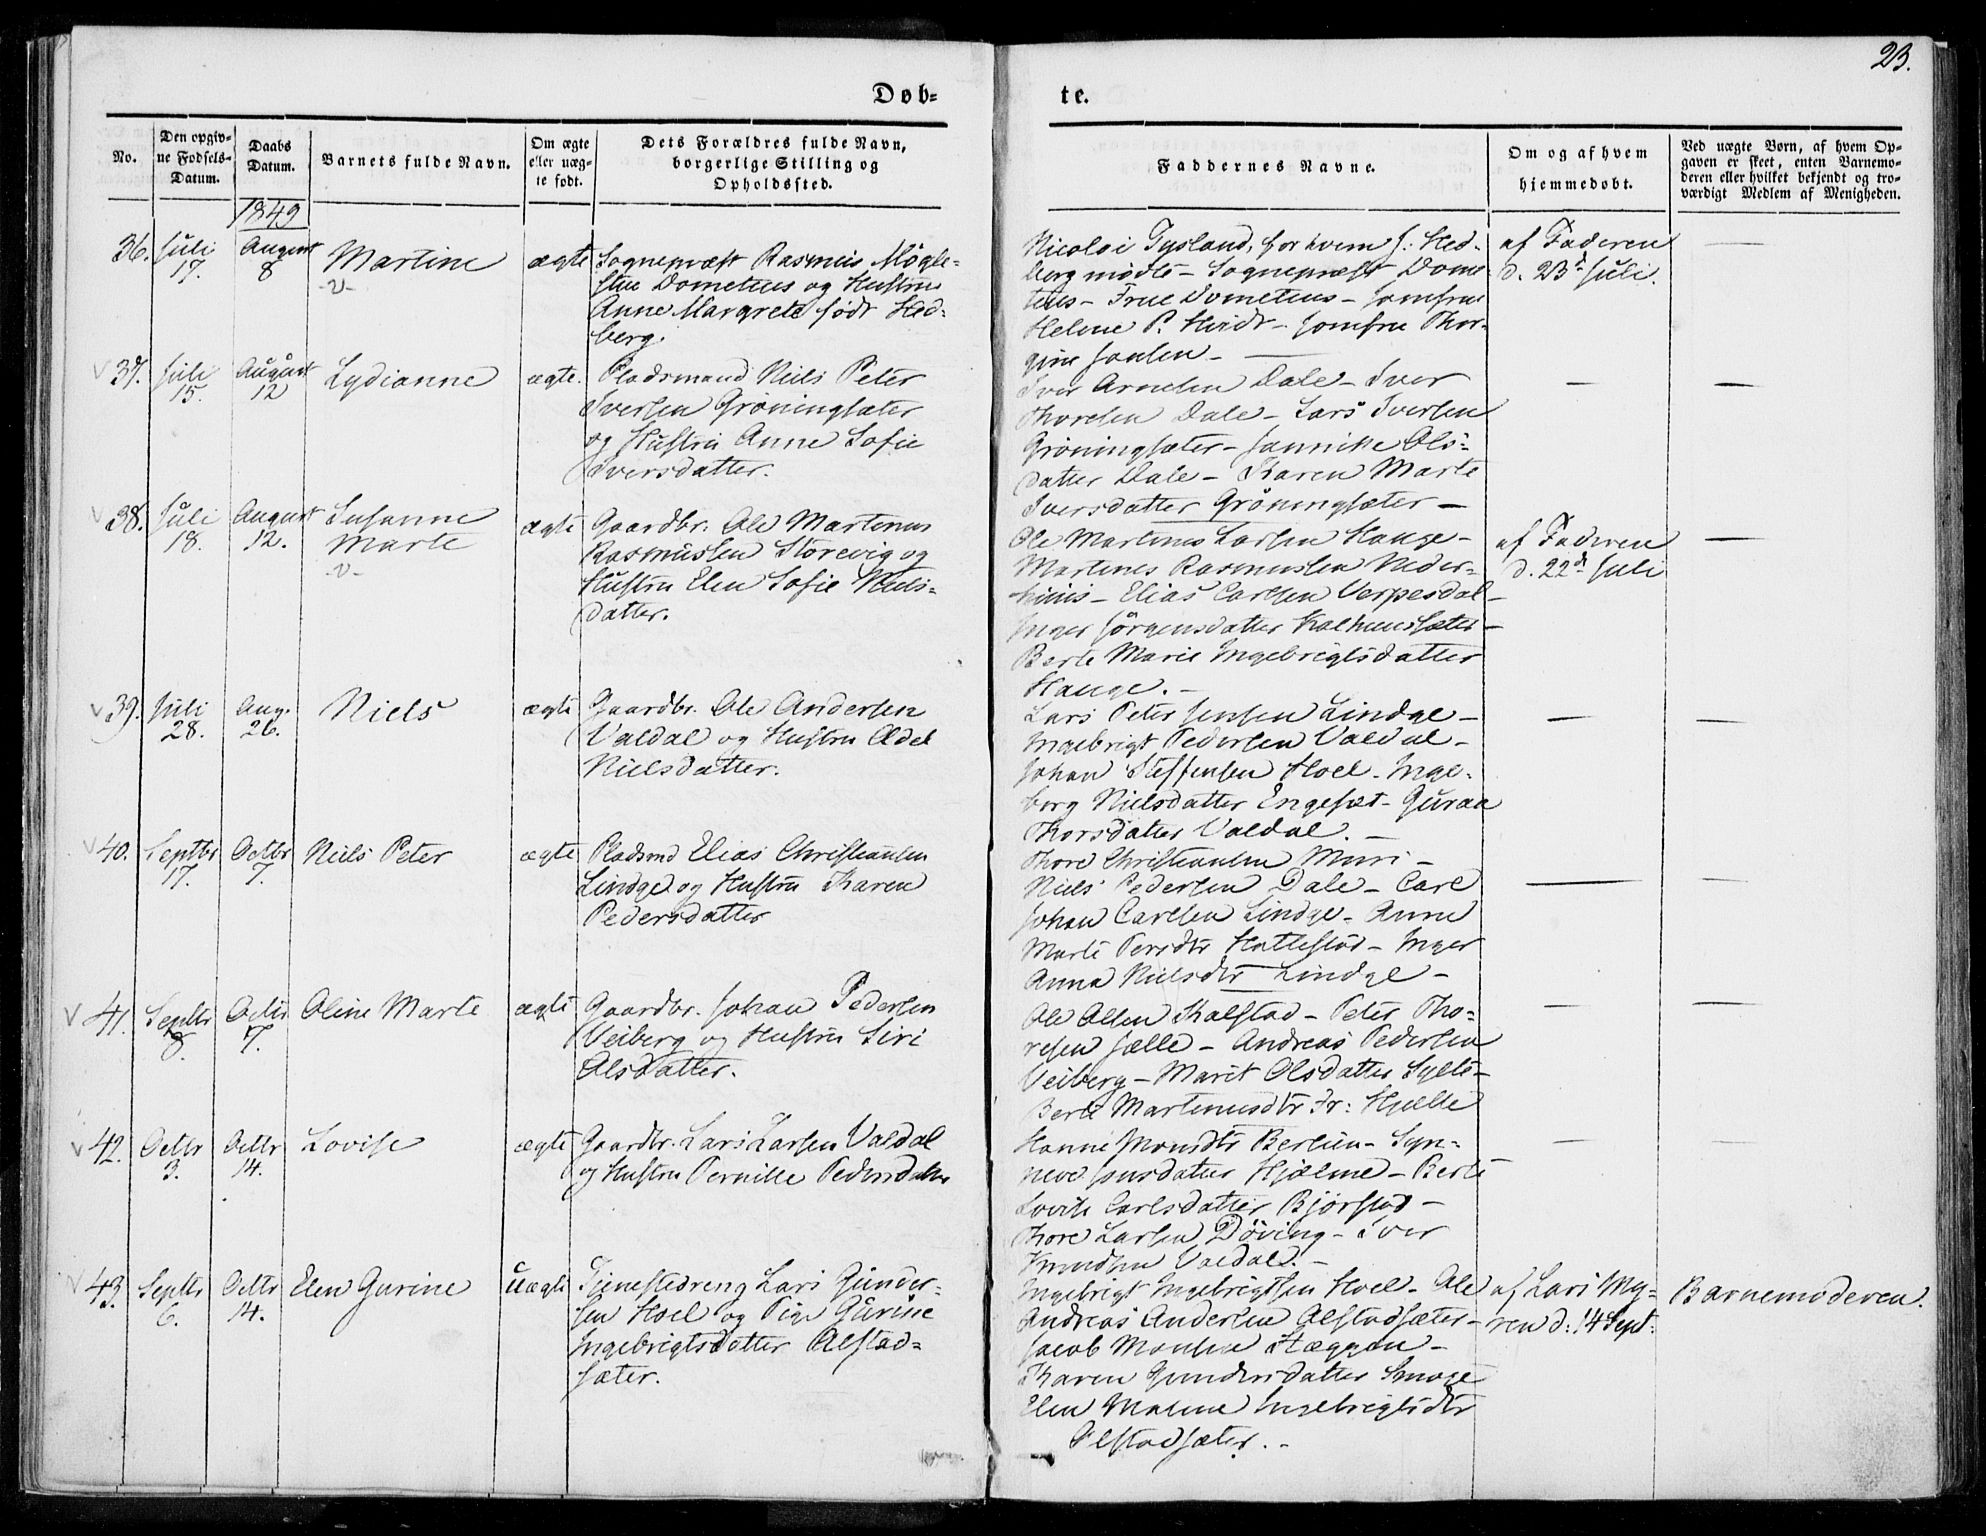 23.
Døb-
te.
No.
Den opgiv-
ne Fødsels-
Datum.
Daabs
Datum.
Barnets fulde Navn.
Om ægte
eller uæg-
te født.
Dets Forældres fulde Navn,
borgerlige Stilling og
Opholdssted.
Faddernes Navne.
Om og af hvem
hjemmedøbt.
Ved uægte Børn, af hvem Op-
gaven er skeet, enten Barnemo-
deren eller hvilket bekjendt og tro-
værdigt Medlem af Menigheden.
1849
36.
Juli
17.
August
8
Martine
-v-
ægte
Sognepræst Rasmus Møgle-
stue Dometius og Hustru
Anne Margrete født Hed-
berg.
Nicolai Tysland, for hvem J. Hed-
berg mødte - Sognepræst Dome-
tius - Frue Dometius - Jomfru
Helene P. Hvidt - Jomfru Thor-
gine Jansen -
af Faderen
d. 23d Juli.
37.
Juli
15.
August
12
Lydianne
ægte.
Pladsmand Niels Peter
Iversen Grøningsæter
og Hustru Anne Sofie
Iversdatter.
Iver Arnesen Dale - Iver
Thoresen Dale - Lars Iversen
Grøningsæter - Jannike Ols-
datter Dale - Karen Marte
Iversdatter Grøningsæter -
38.
Juli
18.
August
12.
Susanne
Marte
-v-
ægte
Gaardbr. Ole Martinus
Rasmussen Storevig og
Hustru Elen Sofie Niels-
datter.
Ole Martinus Larsen Hauge -
Martines Rasmussen Neder-
- Elias Carlsen Verpesdal -
Inger Jørgensdatter Kalhussæter -
Berte Marie Ingebrigtsdatter
Hauge. -
af Faderen
d. 22d Juli
39.
Juli
28.
Aug.
26.
Niels
ægte
Gaardbr. Ole Andersen
Valdal og Hustru Adel
Nielsdatter.
Lars Peter Jensen Lindge -
Ingebrigt Pedersen Valdal -
Johan Steffensen Hoel - Inge-
borg Nielsdatter Engeset - Guraa
Thorsdatter Valdal. -
40.
Septbr
17.
Octbr
7.
Niels Peter
ægte
Pladsmd Elias Christiansen
Lindge og Hustru Karen
Pedersdatter
Thore Christiansen Muri -
Niels Pedersen Dale - Carl
Johan Carlsen Lindge - Anne
Marte Persdtr Hattestad - Inger
Anna Nielsdtr Lindge -
41.
Septbr
8.
Octbr
7.
Oline Marte
ægte
Gaardbr. Johan Pedersen
Veiberg og Hustru Siri
Olsdatter.
Ole Olsen Kalstad - Peter Tho-
resen Jælle - Andreas Pedersen
Veiberg - Marit Olsdatter Sylte -
Berte Martinusdtr Fr: Hjelle
42.
Octbr
3.
Octbr
14.
Lovise
ægte
Gaardbr. Lars Larsen Valdal
og Hustru Pernille Pedersdatter
Hanne Monsdtr Berlien - Syn-
neve Jensdatter Hjelme - Berte
Lovise Carlsdatter Bjørstad -
Thore Larsen Døving - Iver
Knudsen Valdal. -
43.
Septbr
6.
Octbr
14.
Elen Gurine
uægte
Tjenestedreng Lars Gunder-
sen Hoel og Pige Gurine
Ingebrigtsdatter Alstad-
sæter.
Ingebrigt Ingebrigtsen Hoel - Ole
Andreas Andersen Alstadsæter -
Jacob Monsen Hæggen -
Karen Gundersdatter Smoge
Elen Malene Ingebrigtsdtr
Alstadsæter. -
af Lars My-
ren d: 14 Sept.
Barnemoderen.